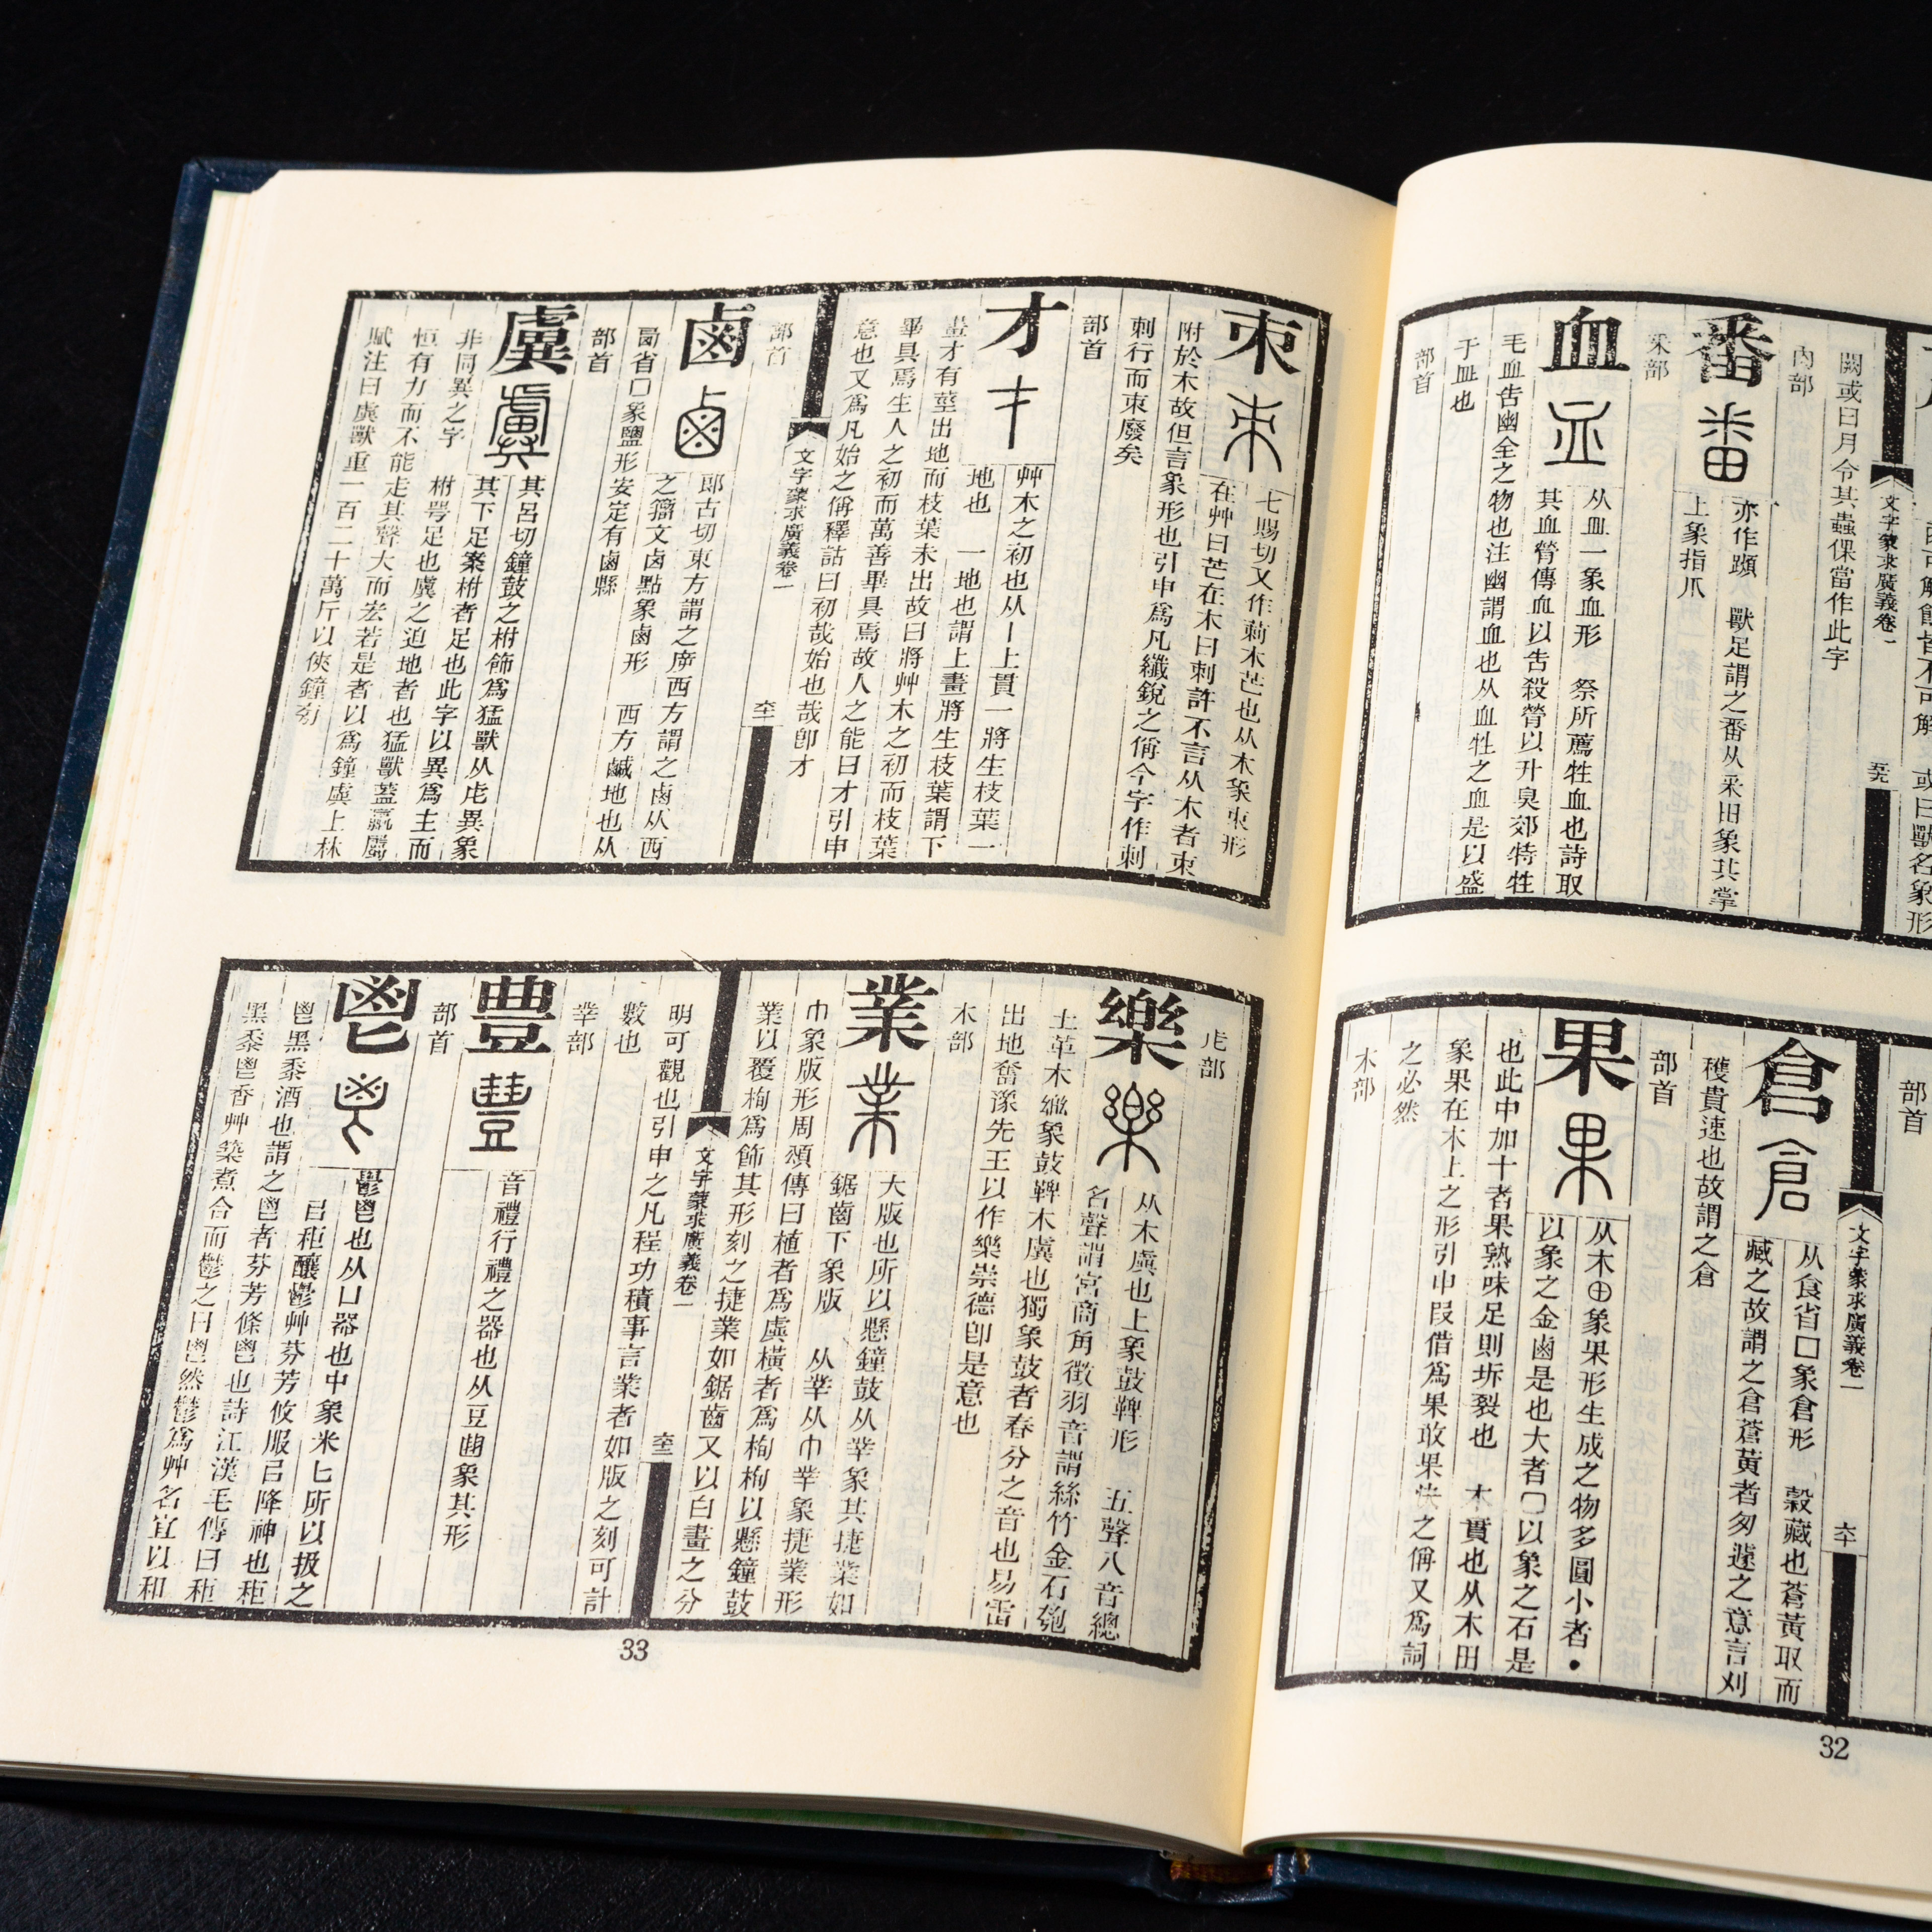 闕或曰月令其蟲倮當作此字
內部
番
亦作蹞 獸足謂之番从釆田象其掌
上象指爪
釆部
血
从皿一象血形 祭所薦牲血也詩取
其血膋傳血以告殺膋以升臭郊特牲
毛血告幽全之物也注幽謂血也从血牲之血是以盛
于皿也
部首
部首
文字蒙求廣義卷一
倉
从食省口象倉形 穀藏也蒼黃取而
藏之故謂之倉蒼黃者匆遽之意言刈
穫貴速也故謂之倉
部首
果
从木⊕象果形生成之物多圓小者•
以象之金鹵是也大者〇以象之石是
也此中加十者果熟味足則坼裂也 木實也从木田
象果在木上之形引申叚借爲果敢果快之偁又爲詞
之必然
木部
32
朿
七賜切又作莿木芒也从木象朿形
在艸曰芒在木曰刺許不言从木者朿
附於木故但言象形也引申爲凡纖銳之偁今字作刺
刺行而朿廢矣
部首
才
艸木之初也从丨上貫一將生枝葉一
地也 一地也謂上畫將生枝葉謂下
畫才有莖出地而枝葉未出故曰將艸木之初而枝葉
畢具焉生人之初而萬善畢具焉故人之能曰才引申
意也又爲凡始之偁釋詁曰初哉始也哉卽才
文字蒙求廣義卷一
部首
鹵
郎古切東方謂之㡿西方謂之鹵从西
之籒文卤點象鹵形 西方鹹地也从
㢴省口象鹽形安定有鹵縣
部首
虡
其呂切鐘鼓之柎飾爲猛獸从虍異象
其下足案柎者足也此字以異爲主而
非同異之字 柎咢足也虡之迫地者也猛獸蓋羸屬
恒有力而不能走其聲大而宏若是者以爲鐘虡上林
賦注曰虡獸重一百二十萬斤以俠鐘旁
虍部
樂
从木虡也上象鼓鞞形 五聲八音總
名聲謂宮商角徵羽音謂絲竹金石匏
土革木𢆶象鼓鞞木虡也獨象鼓者春分之音也易雷
出地奮豫先王以作樂崇德卽是意也
木部
業
大版也所以懸鐘鼓从丵象其捷業如
鋸齒下象版 从丵从巾丵象捷業形
巾象版形周頌傳曰植者爲虡橫者爲栒栒以懸鐘鼓
業以覆栒爲飾其形刻之捷業如鋸齒又以白畫之分
文字蒙求廣義卷一
明可觀也引申之凡程功積事言業者如版之刻可計
數也
丵部
豊
音禮行禮之器也从豆𠁳象其形
部首
鬯
鬱鬯也从凵器也中象米匕所以扱之
㠯秬釀鬱艸芬芳攸服㠯降神也秬
鬯黑黍酒也謂之鬯者芬芳條鬯也詩江漢毛傳曰秬
黑黍鬯香艸築煮合而鬱之曰鬯然鬱爲艸名宜以和
33